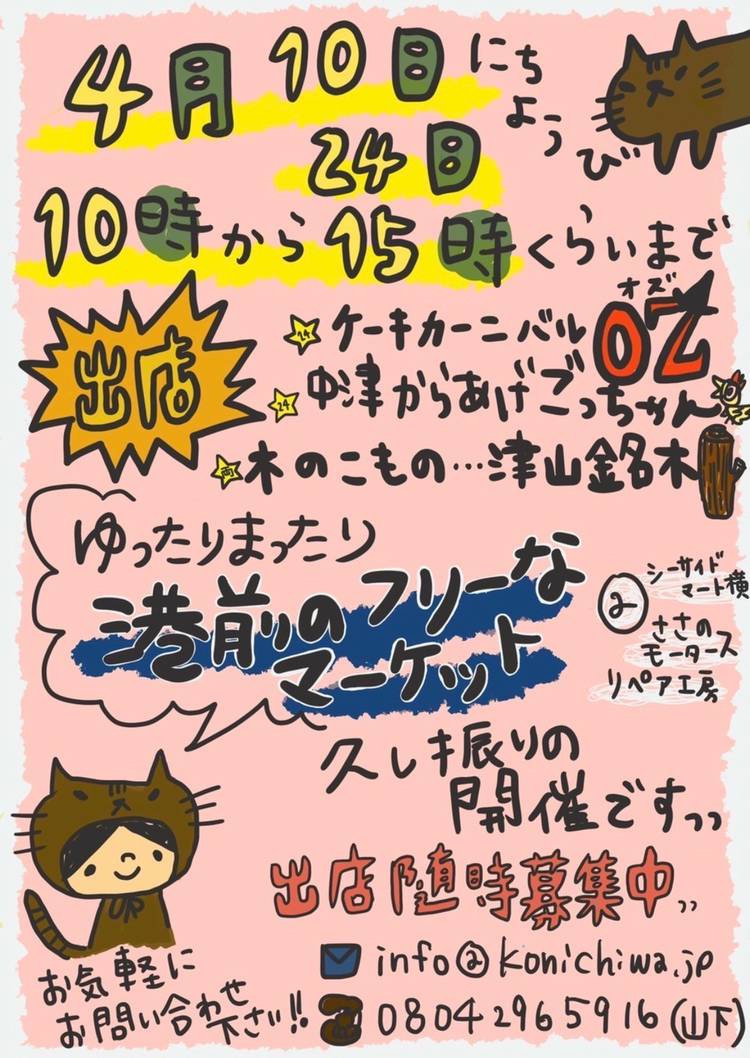 4月10日にちようび
24日
10時から15時くらいまで
出店
オズ
24 ケーキカーニバルOZ
24 中津からあげごっちゃん
両 木のこもの…津山銘木
ゆったりまったり
港前のフリーな
マーケット
@
シーサイド
マート横
ささの
モータース
リペア工房
久し振りの
開催ですっっ
出店随時募集中,,
info@konichiwa.jp
08042965916(山下)
お気軽に
お問い合わせ
下さい!!